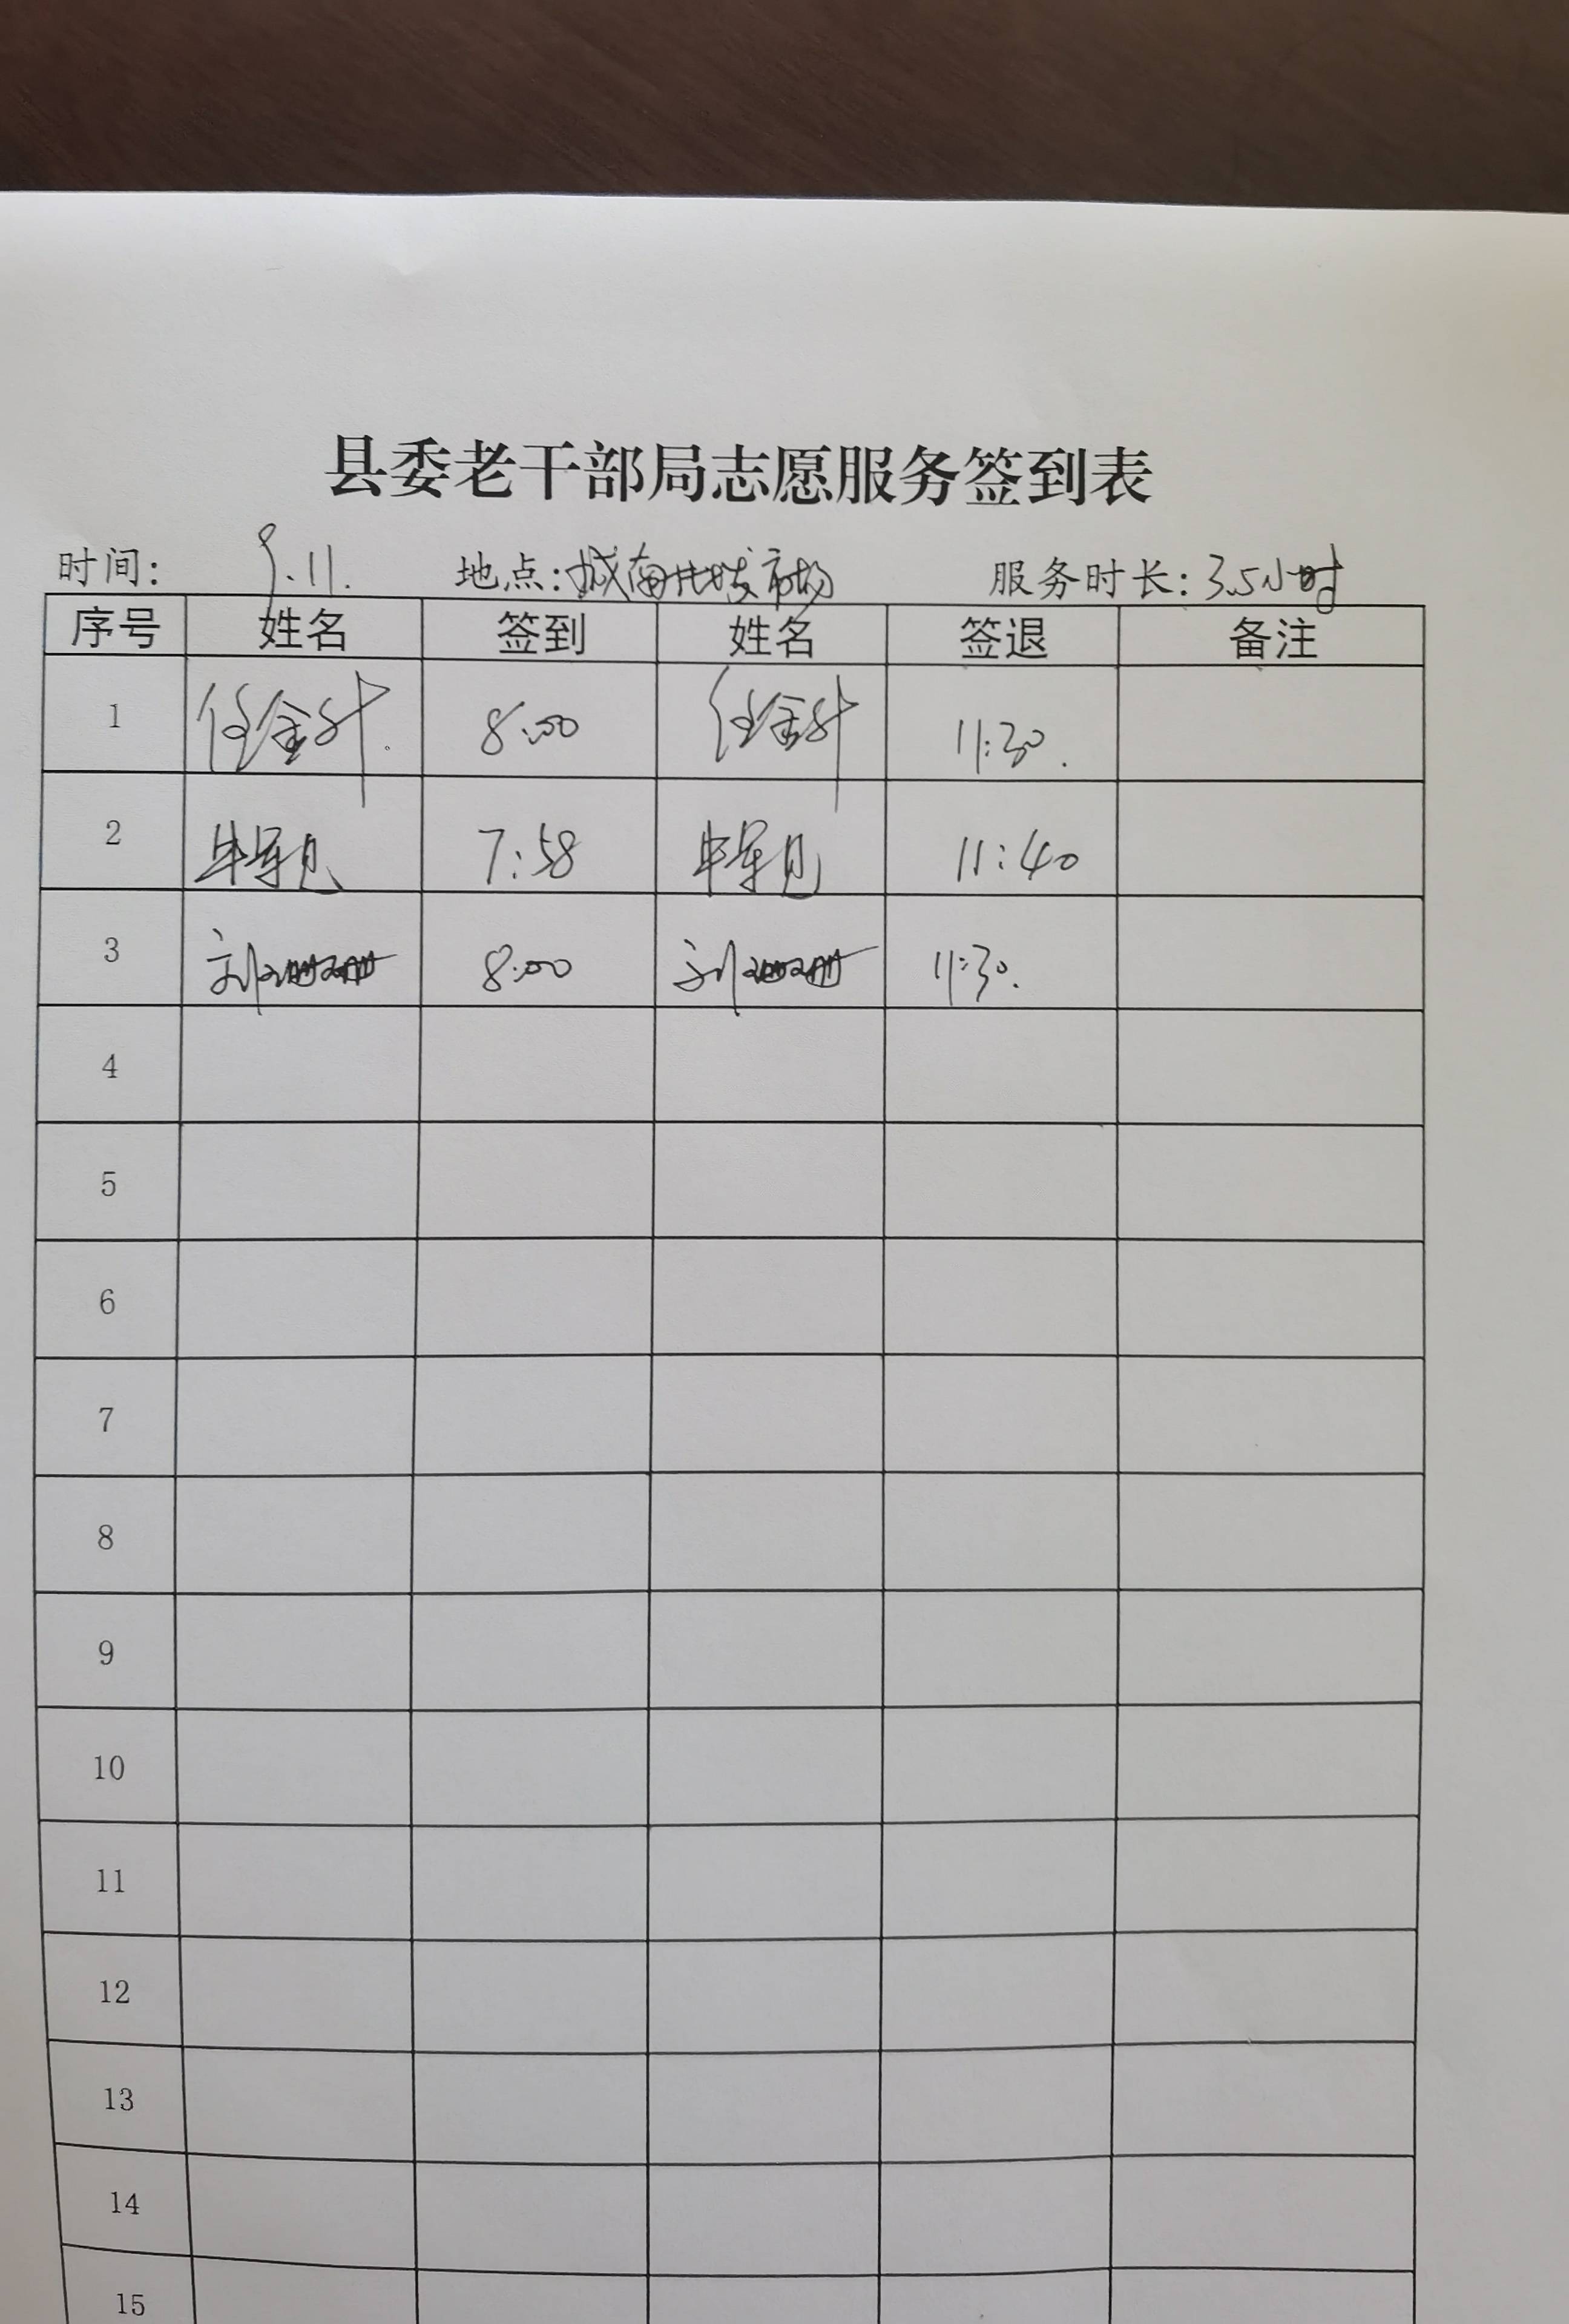 县委老干部局志愿服务签到表
时间: 9.11. 地点:城南批发市场 服务时长:3.5小时
序号 姓名 签到 姓名 签退 备注
1 任金叶 8:00 任金叶 11:30.
2 7:58 11:40
3 刘 8:00 刘 11:30.
4
5
6
7
8
9
10
11
12
13
14
15